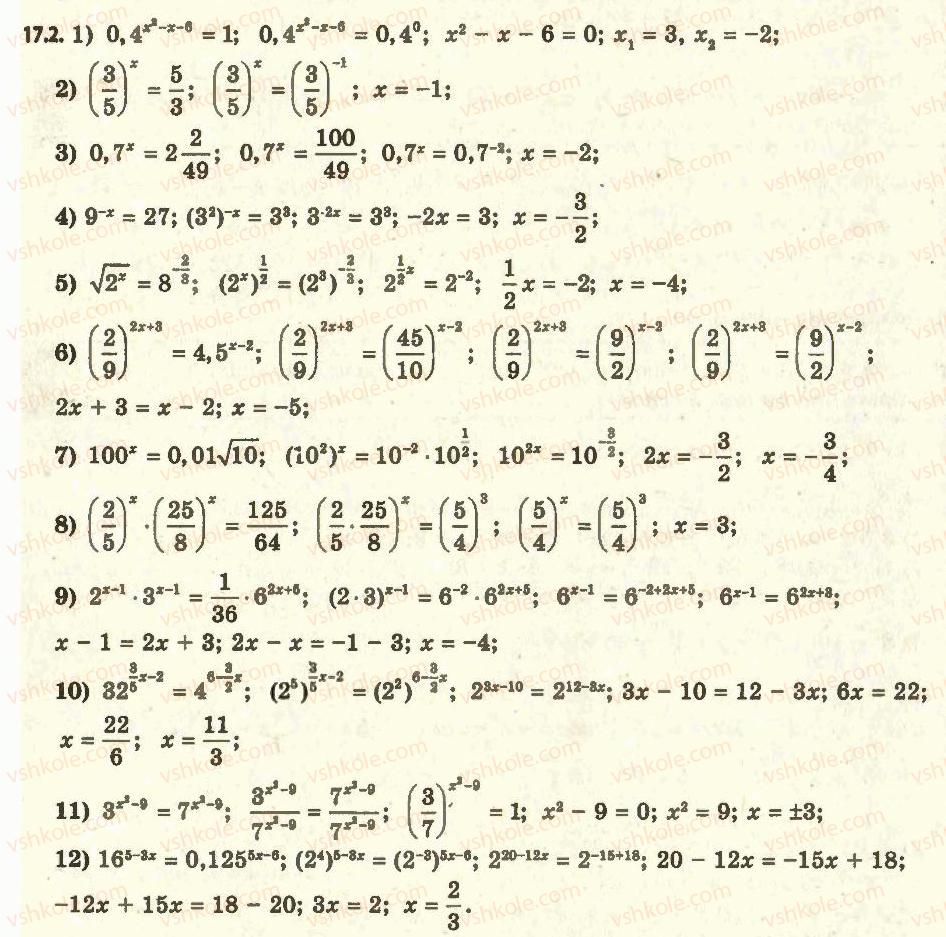 17.2. 1) 0,4^(x²−x−6) = 1; 0,4^(x²−x−6) = 0,4⁰; x² − x − 6 = 0; x₁ = 3, x₂ = −2;
2) (3/5)^x = 5/3; (3/5)^x = (3/5)^(−1); x = −1;
3) 0,7^x = 2 2/49; 0,7^x = 100/49; 0,7^x = 0,7^(−2); x = −2;
4) 9^(−x) = 27; (3²)^(−x) = 3³; 3^(-2x) = 3³; −2x = 3; x = −3/2;
5) √(2^x) = 8^(−2/3); (2^x)^(1/2) = (2³)^(−2/3); 2^(1/2 x) = 2^(−2); 1/2 x = −2; x = −4;
6) (2/9)^(2x+3) = 4,5^(x−2); (2/9)^(2x+3) = (45/10)^(x−2); (2/9)^(2x+3) = (9/2)^(x−2); (2/9)^(2x+3) = (9/2)^(x−2);
2x + 3 = x − 2; x = −5;
7) 100^x = 0,01√10; (10²)^x = 10^(−2) · 10^(1/2); 10^(2x) = 10^(−3/2); 2x = −3/2; x = −3/4;
8) (2/5)^x · (25/8)^x = 125/64; (2/5 · 25/8)^x = (5/4)³; (5/4)^x = (5/4)³; x = 3;
9) 2^(x−1) · 3^(x−1) = 1/36 · 6^(2x+5); (2 · 3)^(x−1) = 6^(−2) · 6^(2x+5); 6^(x−1) = 6^(−2+2x+5); 6^(x−1) = 6^(2x+3);
x − 1 = 2x + 3; 2x − x = −1 − 3; x = −4;
10) 32^(3/5 x−2) = 4^(6−3/2 x); (2⁵)^(3/5 x−2) = (2²)^(6−3/2 x); 2^(3x−10) = 2^(12−3x); 3x − 10 = 12 − 3x; 6x = 22;
x = 22/6; x = 11/3;
11) 3^(x²−9) = 7^(x²−9); 3^(x²−9)/7^(x²−9) = 7^(x²−9)/7^(x²−9); (3/7)^(x²−9) = 1; x² − 9 = 0; x² = 9; x = ±3;
12) 16^(5−3x) = 0,125^(5x−6); (2⁴)^(5−3x) = (2^(−3))^(5x−6); 2^(20−12x) = 2^(−15+18); 20 − 12x = −15x + 18;
−12x + 15x = 18 − 20; 3x = 2; x = 2/3.